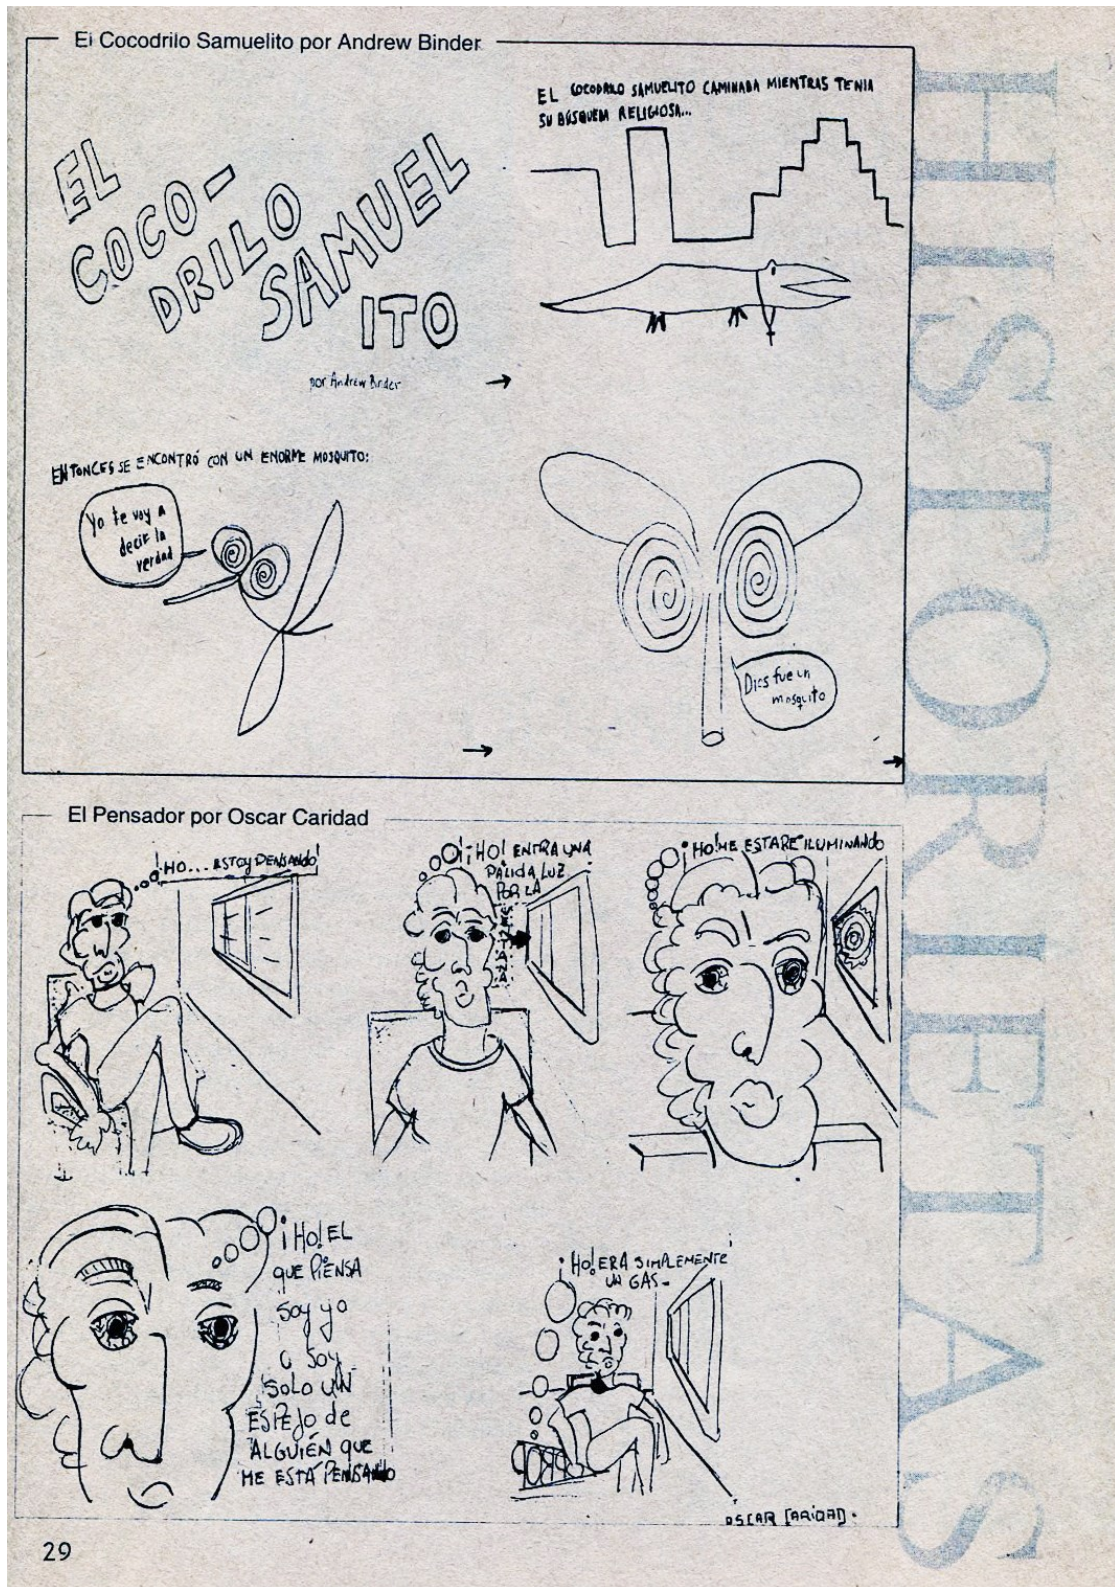 El Cocodrilo Samuelito por Andrew Binder
EL
COCO-
DRILO
SAMUEL
ITO
por Andrew Binder
EL COCODRILO SAMUELITO CAMINABA MIENTRAS TENIA
SU BÚSQUEDA RELIGIOSA...
ENTONCES SE ENCONTRÓ CON UN ENORME MOSQUITO:
Yo te voy a
decir la
verdad
Dios fue un
mosquito
El Pensador por Oscar Caridad
¡HO... ESTOY PENSANDO!
¡HO! ENTRA UNA
PÁLIDA LUZ
POR LA
VENTANA
¡HO! ME ESTARE ILUMINANDO
¡HO! EL
QUE PIENSA
SOY YO
O SOY
SOLO UN
ESPEJO de
ALGUIÉN QUE
ME ESTÁ PENSANDO
¡HO! ERA SIMPLEMENTE
UN GAS.
OSCAR CARIDAD.
HISTORIETAS
29